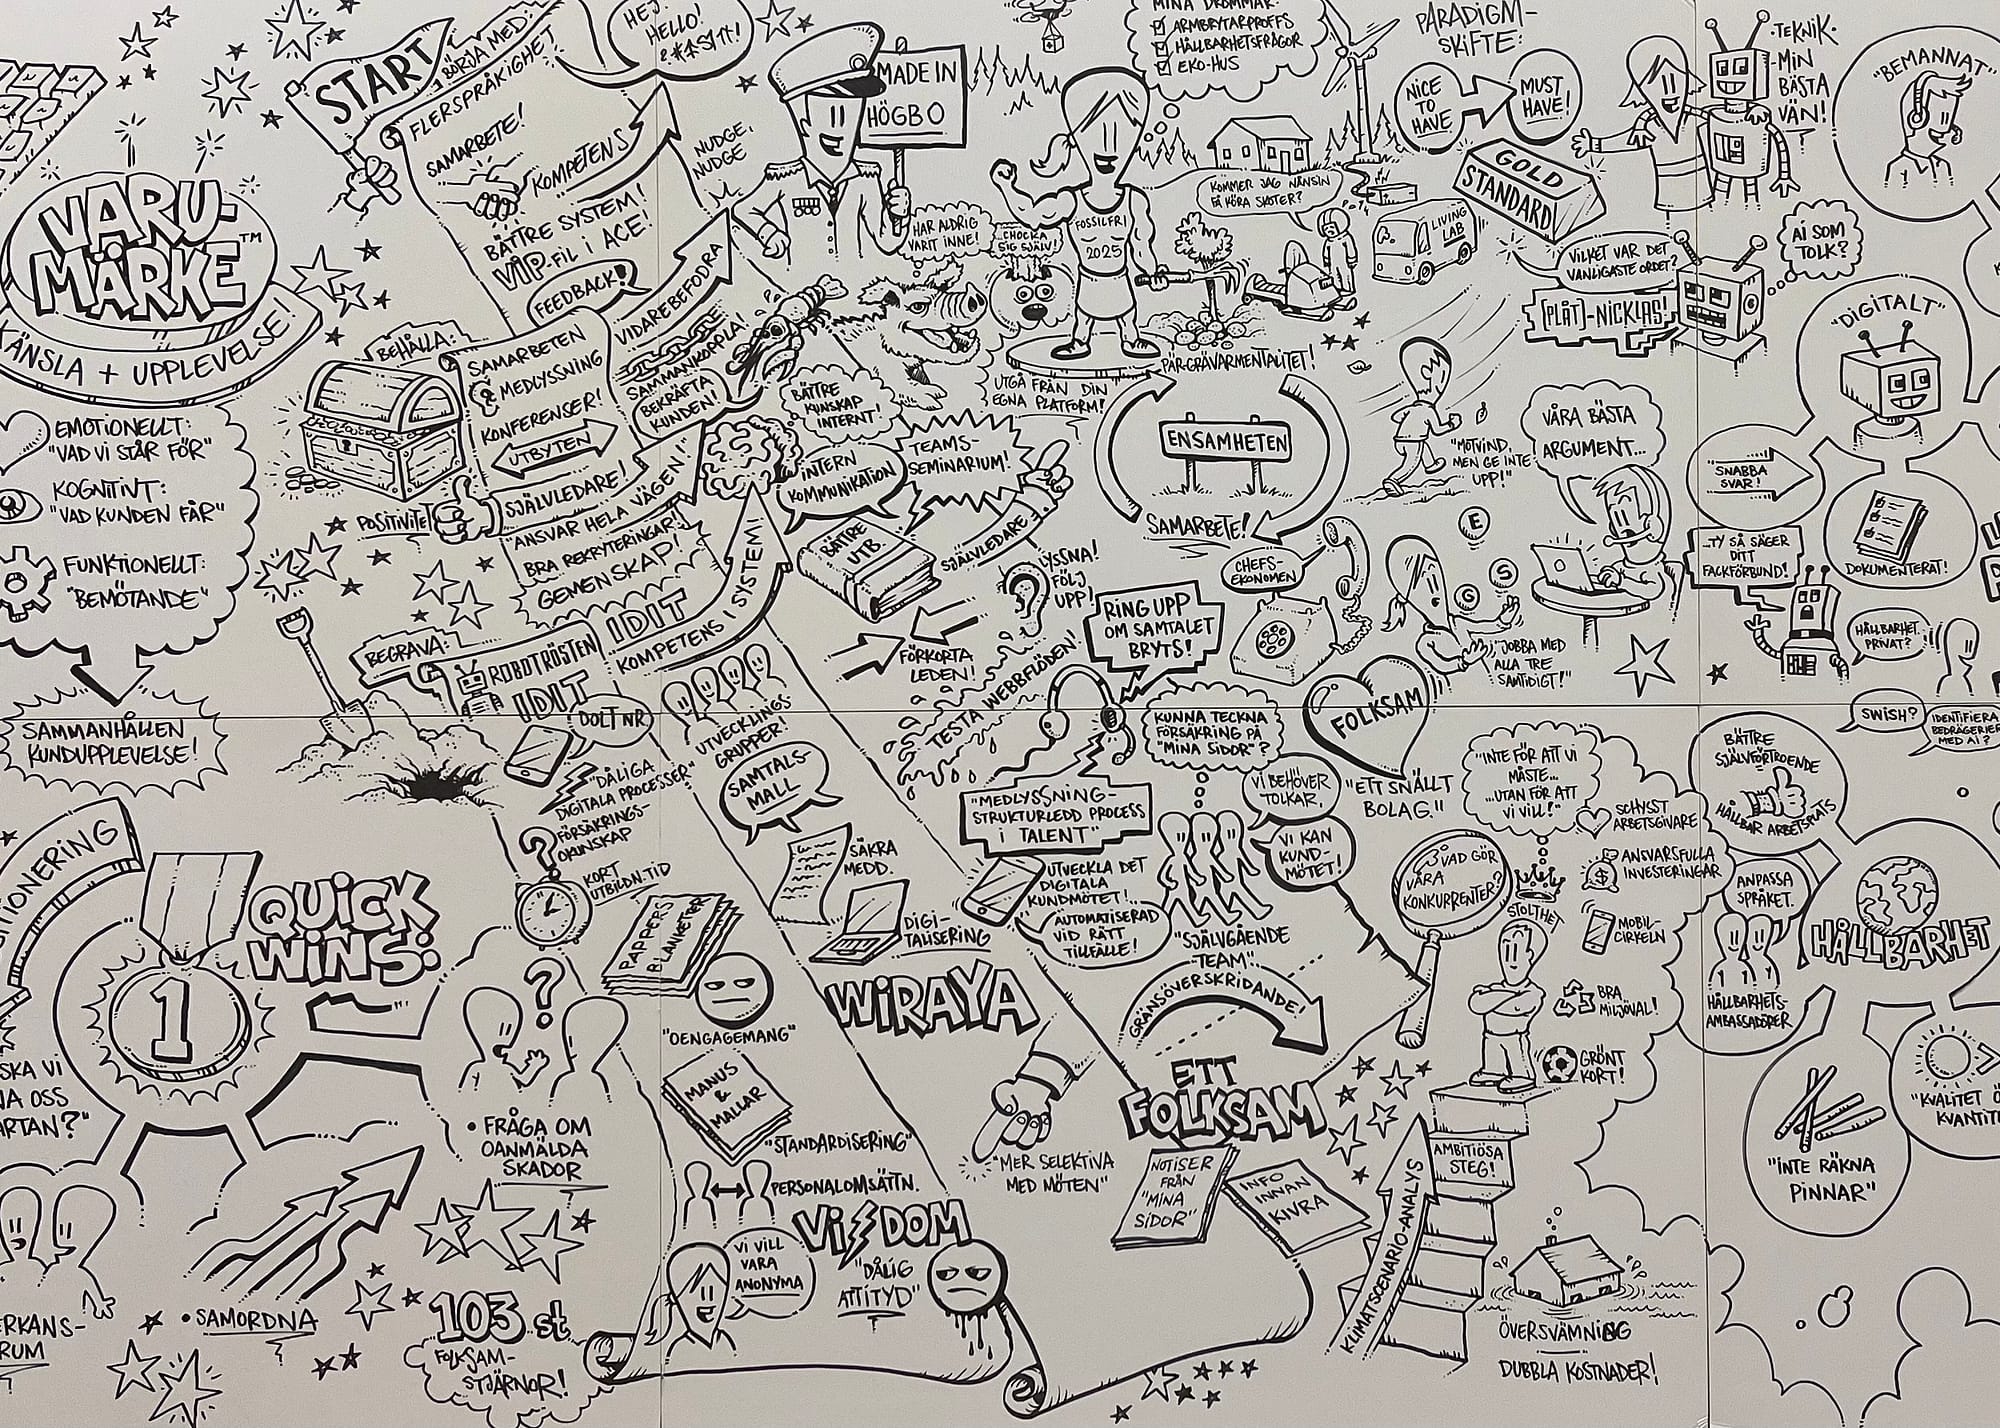 VARU-
MÄRKE™
KÄNSLA + UPPLEVELSE!
EMOTIONELLT:
"VAD VI STÅR FÖR"
KOGNITIVT:
"VAD KUNDEN FÅR"
FUNKTIONELLT:
"BEMÖTANDE"
SAMMANHÅLLEN
KUNDUPPLEVELSE!
QUICK
WINS:
1
• FRÅGA OM
OANMÄLDA
SKADOR
• SAMORDNA
103 st
FOLKSAM-
STJÄRNOR!
START
BÖRJA MED:
FLERSPRÅKIGHET
HEJ!
HELLO!
&#*$¶†!
SAMARBETE!
KOMPETENS
BÄTTRE SYSTEM!
VIP-FIL i ACE!
FEEDBACK!
NUDGE,
NUDGE
VIDAREBEFODRA
SAMMANKOPPLA!
BEKRÄFTA
KUNDEN!
BEHÅLLA:
SAMARBETEN
MEDLYSSNING
KONFERENSER!
UTBYTEN
SJÄLVLEDARE!
POSITIVITET
"ANSVAR HELA VÄGEN!"
BRA REKRYTERINGAR!
GEMENSKAP!
BEGRAVA:
ROBOTRÖSTEN
IDIT
IDIT
KOMPETENS I SYSTEM!
DOLT NR
"DÅLIGA
DIGITALA PROCESSER"
FÖRSÄKRINGS-
OKUNSKAP
KORT
UTBILDN.TID
PAPPERS
BLANKETTER
"OENGAGEMANG"
MANUS
&
MALLAR
"STANDARDISERING"
PERSONALOMSÄTTN.
VI VILL
VARA
ANONYMA
VISDOM
"DÅLIG
ATTITYD"
UTVECKLINGS-
GRUPPER!
SAMTALS-
MALL
SÄKRA
MEDD.
DIGI-
TALISERING
WIRAYA
"MER SELEKTIVA
MED MÖTEN"
MADE IN
HÖGBO
HAR ALDRIG
VARIT INNE!
CHOCKA
SIG SJÄLV!
BÄTTRE
KUNSKAP
INTERNT!
INTERN
KOMMUNIKATION
TEAMS-
SEMINARIUM!
BÄTTRE
UTB.
SJÄLVLEDARE
FÖRKORTA
LEDEN!
LYSSNA!
FÖLJ
UPP!
TESTA WEBBFLÖDEN!
RING UPP
OM SAMTALET
BRYTS!
"MEDLYSSNING-
STRUKTURLEDD PROCESS
I TALENT"
UTVECKLA DET
DIGITALA
KUNDMÖTET!
AUTOMATISERAD
VID RÄTT
TILLFÄLLE!
KUNNA TECKNA
FÖRSÄKRING PÅ
"MINA SIDOR"?
VI BEHÖVER
TOLKAR,
VI KAN
KUND-
MÖTET!
"SJÄLVGÅENDE
TEAM"
GRÄNSÖVERSKRIDANDE!
ETT
FOLKSAM
NOTISER
FRÅN
"MINA
SIDOR"
INFO
INNAN
KIVRA
MINA DRÖMMAR:
ARMBRYTARPROFFS
HÅLLBARHETSFRÅGOR
EKO-HUS
FOSSILFRI
2025
UTGÅ FRÅN DIN
EGNA PLATFORM!
KOMMER JAG NÅNSIN
FÅ KÖRA SKOTER?
PÄR-GRÄVARMENTALITET!
ENSAMHETEN
SAMARBETE!
CHEFS-
EKONOMEN
FOLKSAM
"ETT SNÄLLT
BOLAG."
PARADIGM-
SKIFTE:
NICE
TO
HAVE
MUST
HAVE!
GOLD
STANDARD!
LIVING
LAB
• TEKNIK •
-MIN
BÄSTA
VÄN!
VILKET VAR DET
VANLIGASTE ORDET?
[PLÅT]-NICKLAS!
AI SOM
TOLK?
"MOTVIND,
MEN GE INTE
UPP!"
VÅRA BÄSTA
ARGUMENT...
...TY SÅ SÄGER
DITT
FACKFÖRBUND!
E
S
G
"JOBBA MED
ALLA TRE
SAMTIDIGT!"
"BEMANNAT"
"DIGITALT"
"SNABBA
SVAR!
DOKUMENTERAT!
HÅLLBARHET
PRIVAT?
SWISH?
IDENTIFIERA
BEDRÄGERIER
MED AI?
BÄTTRE
SJÄLVFÖRTROENDE
HÅLLBAR ARBETSPLATS
"INTE FÖR ATT VI
MÅSTE...
...UTAN FÖR ATT
VI VILL!"
STOLTHET
VAD GÖR
VÅRA
KONKURRENTER?
SCHYSST
ARBETSGIVARE
ANSVARSFULLA
INVESTERINGAR
MOBIL-
CIRKELN
BRA
MILJÖVAL!
GRÖNT
KORT!
ANPASSA
SPRÅKET.
HÅLLBARHETS-
AMBASSADÖRER
HÅLLBARHET
"INTE RÄKNA
PINNAR"
AMBITIÖSA
STEG!
KLIMATSCENARIO-ANALYS
ÖVERSVÄMNING
DUBBLA KOSTNADER!